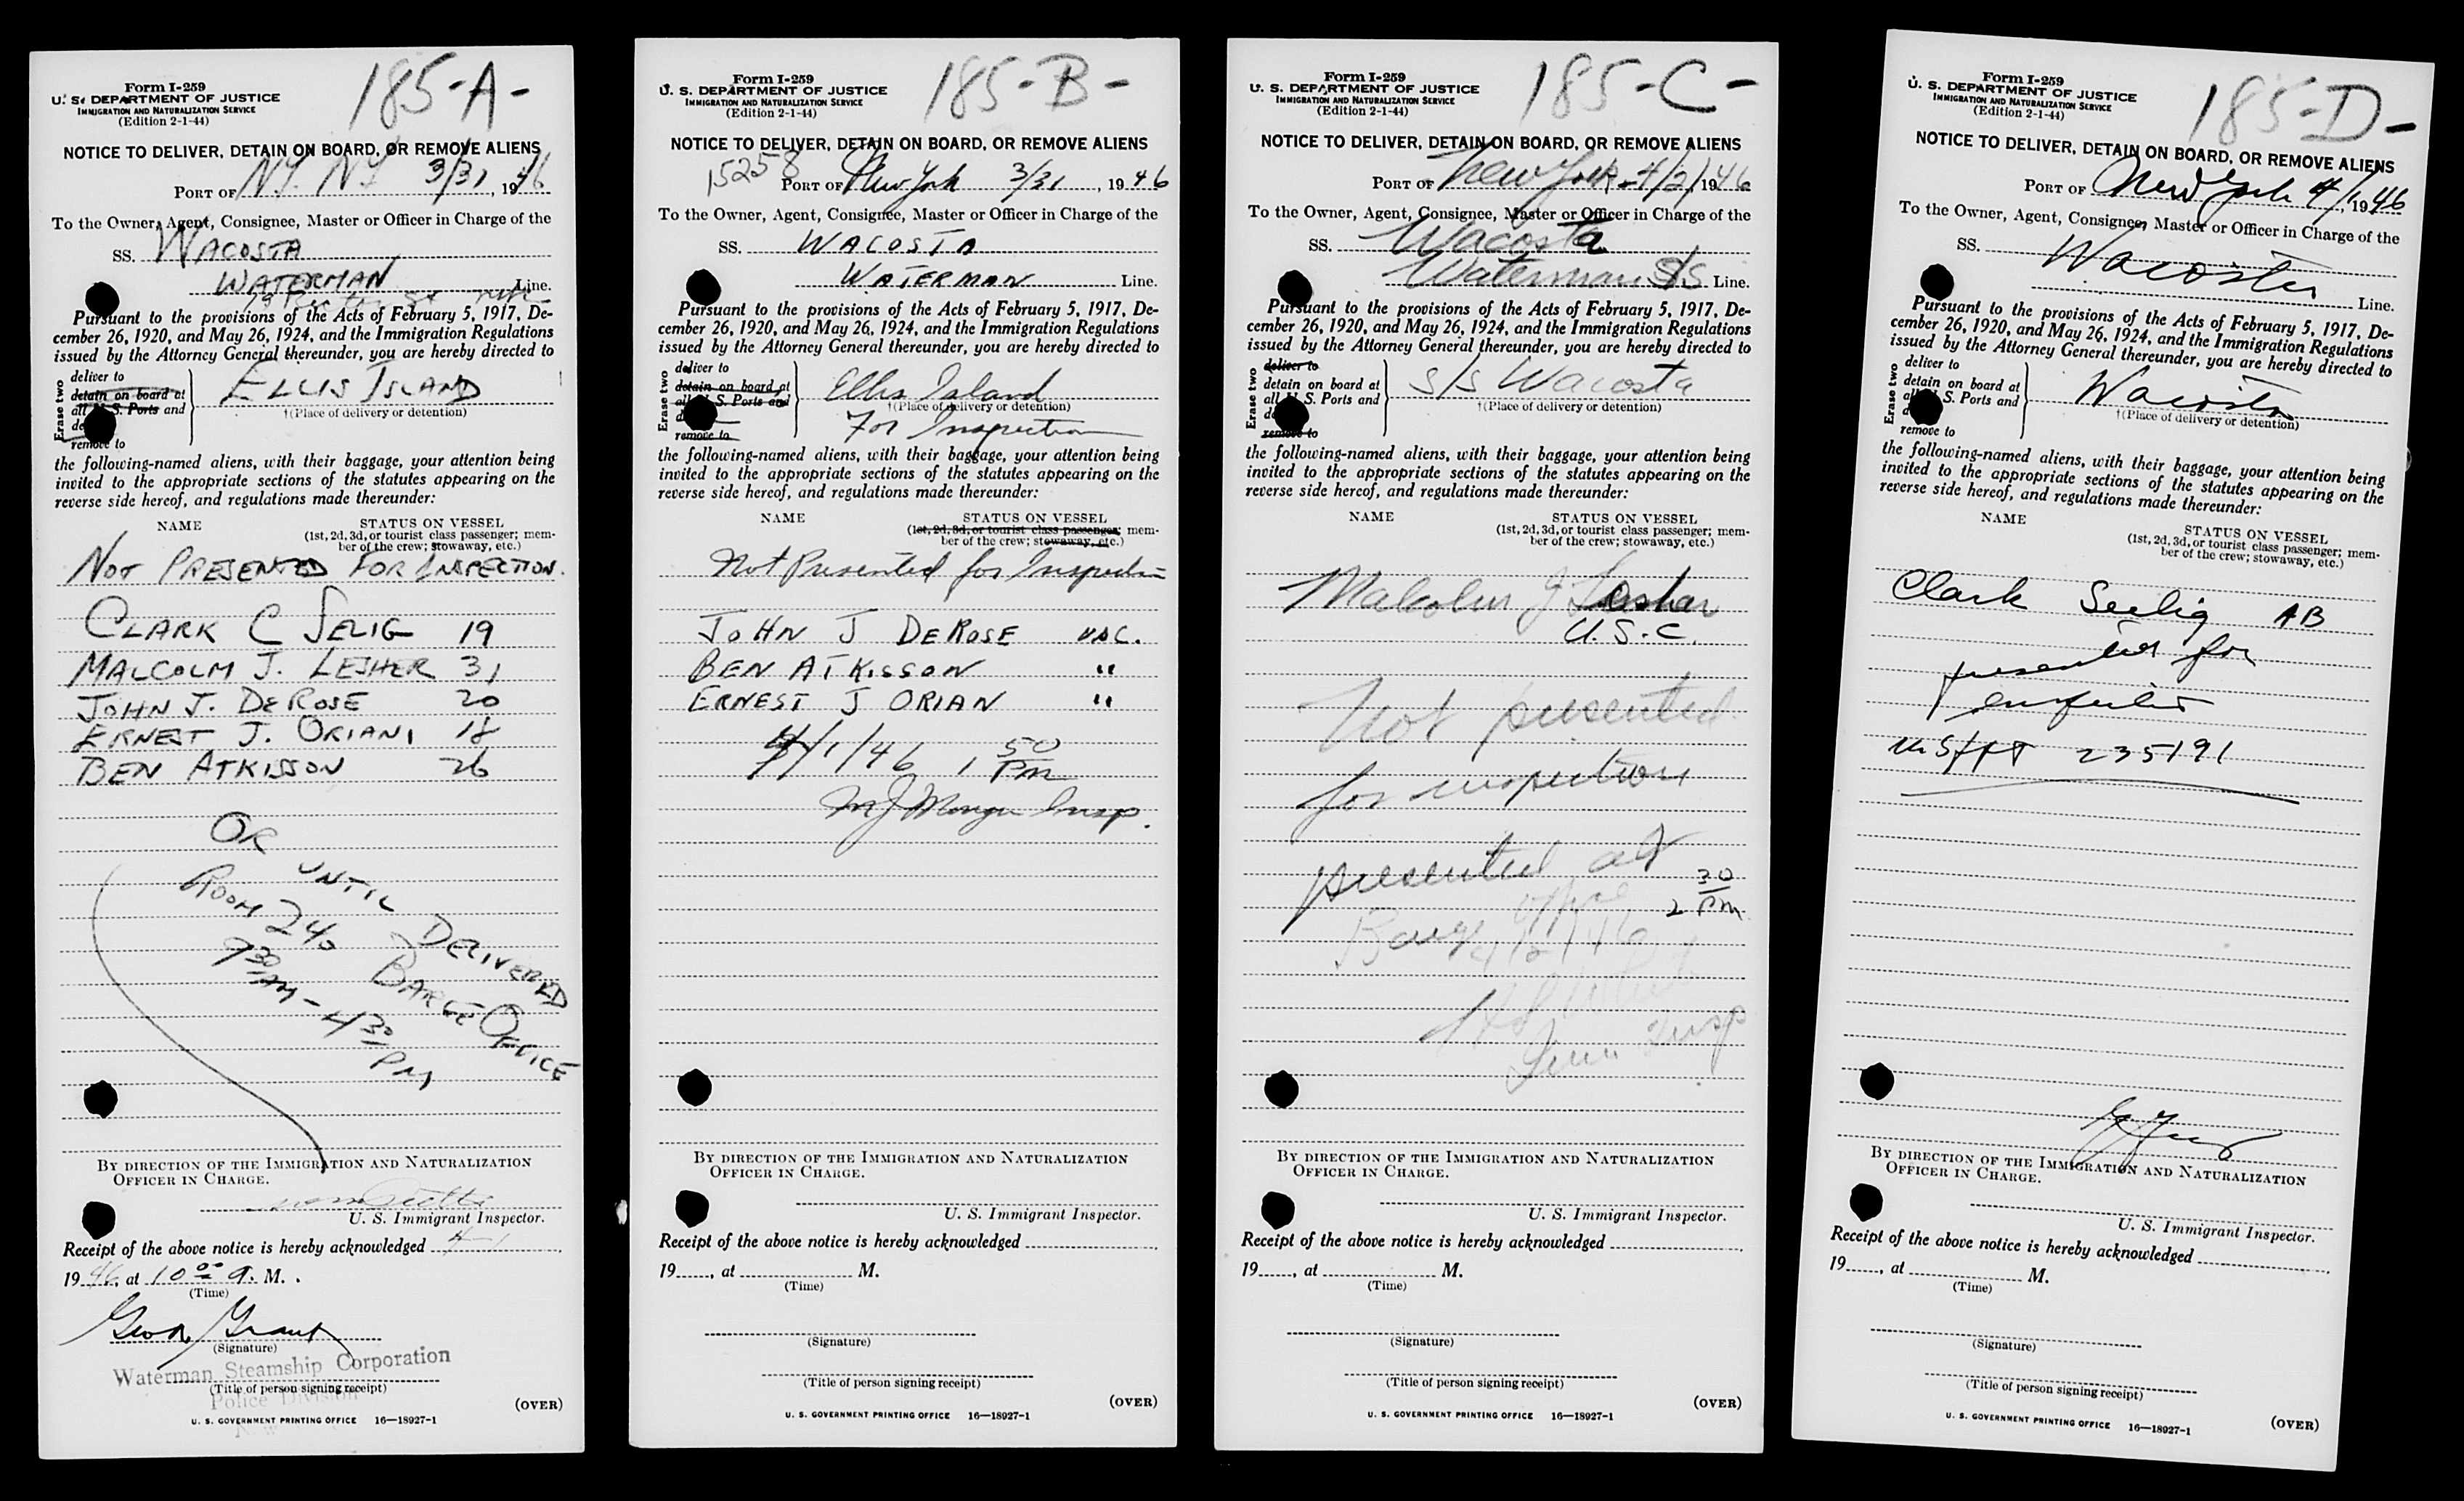 185-A-
Form I-259
U. S. DEPARTMENT OF JUSTICE
IMMIGRATION AND NATURALIZATION SERVICE
(Edition 2-1-44)
NOTICE TO DELIVER, DETAIN ON BOARD, OR REMOVE ALIENS
PORT OF N.Y. N.Y. 3/31, 1946
To the Owner, Agent, Consignee, Master or Officer in Charge of the
SS. WACOSTA
WATERMAN Line.
Pursuant to the provisions of the Acts of February 5, 1917, De-
cember 26, 1920, and May 26, 1924, and the Immigration Regulations
issued by the Attorney General thereunder, you are hereby directed to
Erase two
deliver to
detain on board at
all U. S. Ports and
remove to
ELLIS ISLAND
†(Place of delivery or detention)
the following-named aliens, with their baggage, your attention being
invited to the appropriate sections of the statutes appearing on the
reverse side hereof, and regulations made thereunder:
NAME STATUS ON VESSEL
(1st, 2d, 3d, or tourist class passenger; mem-
ber of the crew; stowaway, etc.)
NOT PRESENTED FOR INSPECTION.
CLARK C SELIG 19
MALCOLM J. LESHER 31
JOHN J. DEROSE 20
ERNEST J. ORIANI 18
BEN ATKISSON 26
OR
UNTIL DELIVERED
ROOM 240 BARGE OFFICE
9 30 AM - 4 30 PM
BY DIRECTION OF THE IMMIGRATION AND NATURALIZATION
OFFICER IN CHARGE.
U. S. Immigrant Inspector.
Receipt of the above notice is hereby acknowledged 4-1
1946, at 10 00 A. M.
(Time)
Geo. Grant
(Signature)
Waterman Steamship Corporation
(Title of person signing receipt)
Police Division
(OVER)
U. S. GOVERNMENT PRINTING OFFICE 16—18927-1
185-B-
Form I-259
U. S. DEPARTMENT OF JUSTICE
IMMIGRATION AND NATURALIZATION SERVICE
(Edition 2-1-44)
NOTICE TO DELIVER, DETAIN ON BOARD, OR REMOVE ALIENS
15258
PORT OF New York 3/31, 1946
To the Owner, Agent, Consignee, Master or Officer in Charge of the
SS. WACOSTA
WATERMAN Line.
Pursuant to the provisions of the Acts of February 5, 1917, De-
cember 26, 1920, and May 26, 1924, and the Immigration Regulations
issued by the Attorney General thereunder, you are hereby directed to
Erase two
deliver to
detain on board at
all U. S. Ports and
remove to
Ellis Island
†(Place of delivery or detention)
For Inspection
the following-named aliens, with their baggage, your attention being
invited to the appropriate sections of the statutes appearing on the
reverse side hereof, and regulations made thereunder:
NAME STATUS ON VESSEL
(1st, 2d, 3d, or tourist class passenger; mem-
ber of the crew; stowaway, etc.)
Not Presented for Inspection
JOHN J DEROSE USC.
BEN ATKISSON "
ERNEST J ORIAN "
4/1/46 1 50 PM
M J Morgan Insp.
BY DIRECTION OF THE IMMIGRATION AND NATURALIZATION
OFFICER IN CHARGE.
U. S. Immigrant Inspector.
Receipt of the above notice is hereby acknowledged
19, at M.
(Time)
(Signature)
(Title of person signing receipt)
(OVER)
U. S. GOVERNMENT PRINTING OFFICE 16—18927-1
185-C-
Form I-259
U. S. DEPARTMENT OF JUSTICE
IMMIGRATION AND NATURALIZATION SERVICE
(Edition 2-1-44)
NOTICE TO DELIVER, DETAIN ON BOARD, OR REMOVE ALIENS
PORT OF New York 4/2/1946
To the Owner, Agent, Consignee, Master or Officer in Charge of the
SS. Wacosta
Waterman S/S Line.
Pursuant to the provisions of the Acts of February 5, 1917, De-
cember 26, 1920, and May 26, 1924, and the Immigration Regulations
issued by the Attorney General thereunder, you are hereby directed to
Erase two
deliver to
detain on board at
all U. S. Ports and
remove to
S/S Wacosta
†(Place of delivery or detention)
the following-named aliens, with their baggage, your attention being
invited to the appropriate sections of the statutes appearing on the
reverse side hereof, and regulations made thereunder:
NAME STATUS ON VESSEL
(1st, 2d, 3d, or tourist class passenger; mem-
ber of the crew; stowaway, etc.)
Malcolm J Lasher
U.S.C.
Not presented
for inspection
presented at
2 30 PM
Barge Office
4/2/46
Imm Insp
BY DIRECTION OF THE IMMIGRATION AND NATURALIZATION
OFFICER IN CHARGE.
U. S. Immigrant Inspector.
Receipt of the above notice is hereby acknowledged
19, at M.
(Time)
(Signature)
(Title of person signing receipt)
(OVER)
U. S. GOVERNMENT PRINTING OFFICE 16—18927-1
185-D-
Form I-259
U. S. DEPARTMENT OF JUSTICE
IMMIGRATION AND NATURALIZATION SERVICE
(Edition 2-1-44)
NOTICE TO DELIVER, DETAIN ON BOARD, OR REMOVE ALIENS
PORT OF New York 4/1, 1946
To the Owner, Agent, Consignee, Master or Officer in Charge of the
SS. Wacosta
Line.
Pursuant to the provisions of the Acts of February 5, 1917, De-
cember 26, 1920, and May 26, 1924, and the Immigration Regulations
issued by the Attorney General thereunder, you are hereby directed to
Erase two
deliver to
detain on board at
all U. S. Ports and
remove to
Wacosta
†(Place of delivery or detention)
the following-named aliens, with their baggage, your attention being
invited to the appropriate sections of the statutes appearing on the
reverse side hereof, and regulations made thereunder:
NAME STATUS ON VESSEL
(1st, 2d, 3d, or tourist class passenger; mem-
ber of the crew; stowaway, etc.)
Clark Seelig AB
presented for
235191
BY DIRECTION OF THE IMMIGRATION AND NATURALIZATION
OFFICER IN CHARGE.
U. S. Immigrant Inspector.
Receipt of the above notice is hereby acknowledged
19, at M.
(Time)
(Signature)
(Title of person signing receipt)
(OVER)
U. S. GOVERNMENT PRINTING OFFICE 16—18927-1